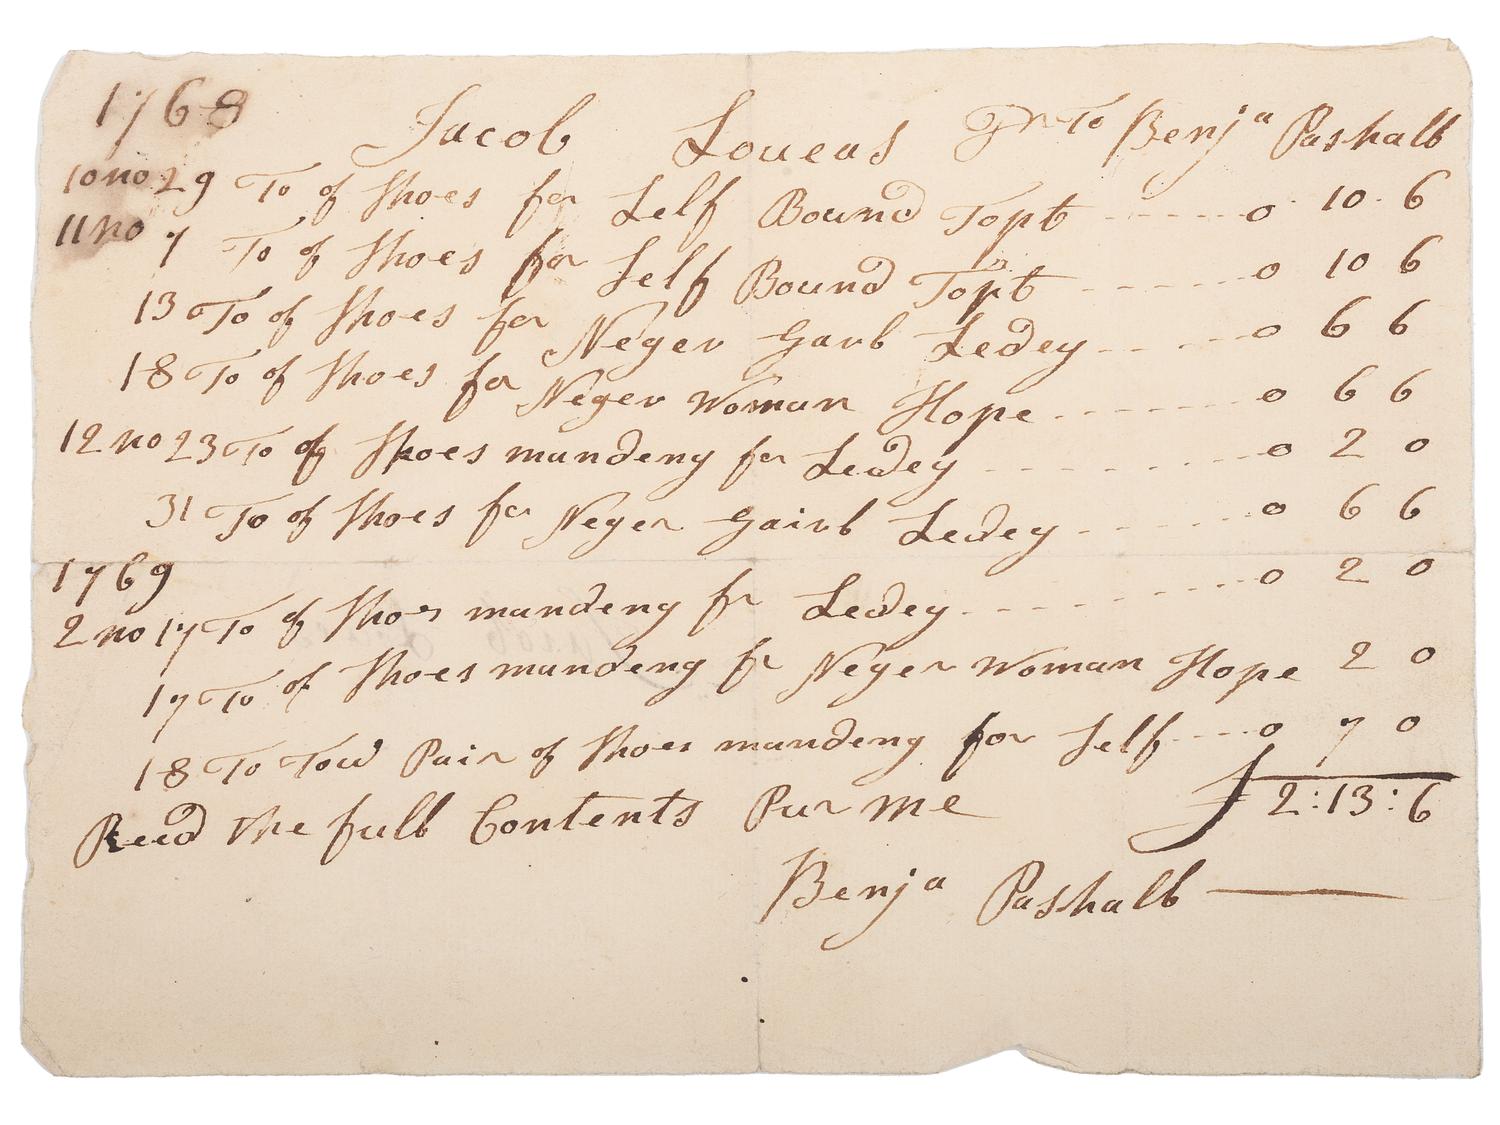 1768
Jacob Loucas Dr To Benja Pashall
10 no 29 To of Shoes for Self Bound Topt - - - - - 0 10 6
11 no 7 To of Shoes for Self Bound Topt - - - - - 0 10 6
13 To of Shoes for Neger Garl Ledey - - - - - 0 6 6
18 To of Shoes for Neger Woman Hope - - - - - 0 6 6
12 no 23 To of Shoes mundeng for Ledey - - - - - 0 2 0
31 To of Shoes for Neger Gairl Ledey - - - - - 0 6 6
1769
2 no 17 To of Shoes mundeng fr Ledey - - - - - 0 2 0
17 To of Shoes mundeng fr Neger Woman Hope 2 0
18 To Tow Pair of Shoes mundeng for Self - - - - 0 7 0
£ 2:13:6
Recd the full Contents Pur me
Benja Pashall